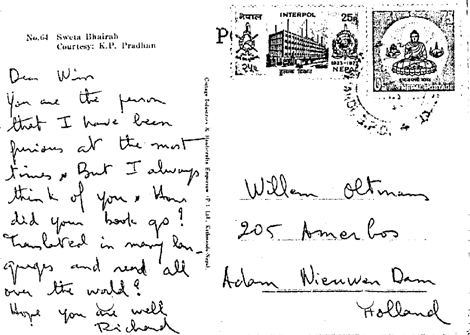 No.64 Sweta Bhairab
Courtesy: K.P. Pradhan
Dear Wim
You are the person
that I have been
furious at the most
times. But I always
think of you. How
did your book go?
Translated in many lan-
guages and read all
over the world?
Hope you are well
Richard
नेपाल
INTERPOL
25
1923-1973
NEPAL
Willem Oltmans
205 Amerbos
Adam Nieuwen Dam
Holland